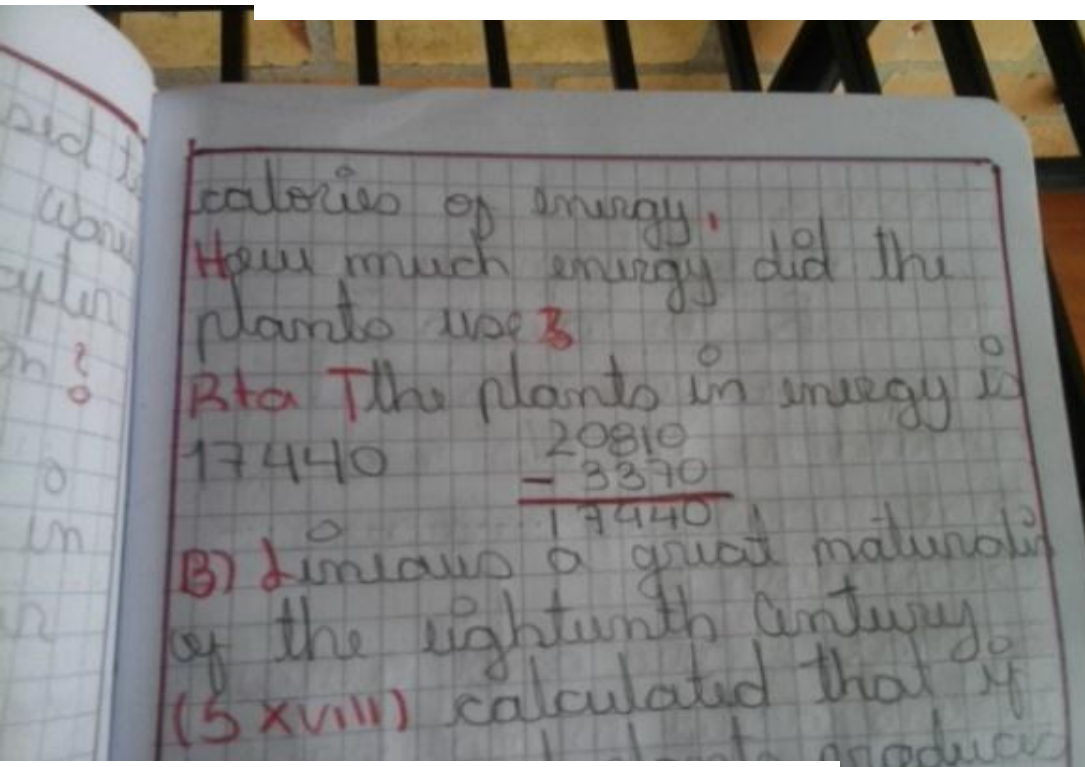 calories of energy.
How much energy did the
plants use?
Rta Tthe plants in energy is
17440
20810
- 3370
17440
B) Linieaus a great naturalis
of the eighteenth Century
(S XVIII) calculated that if
plants produces
sed t
in